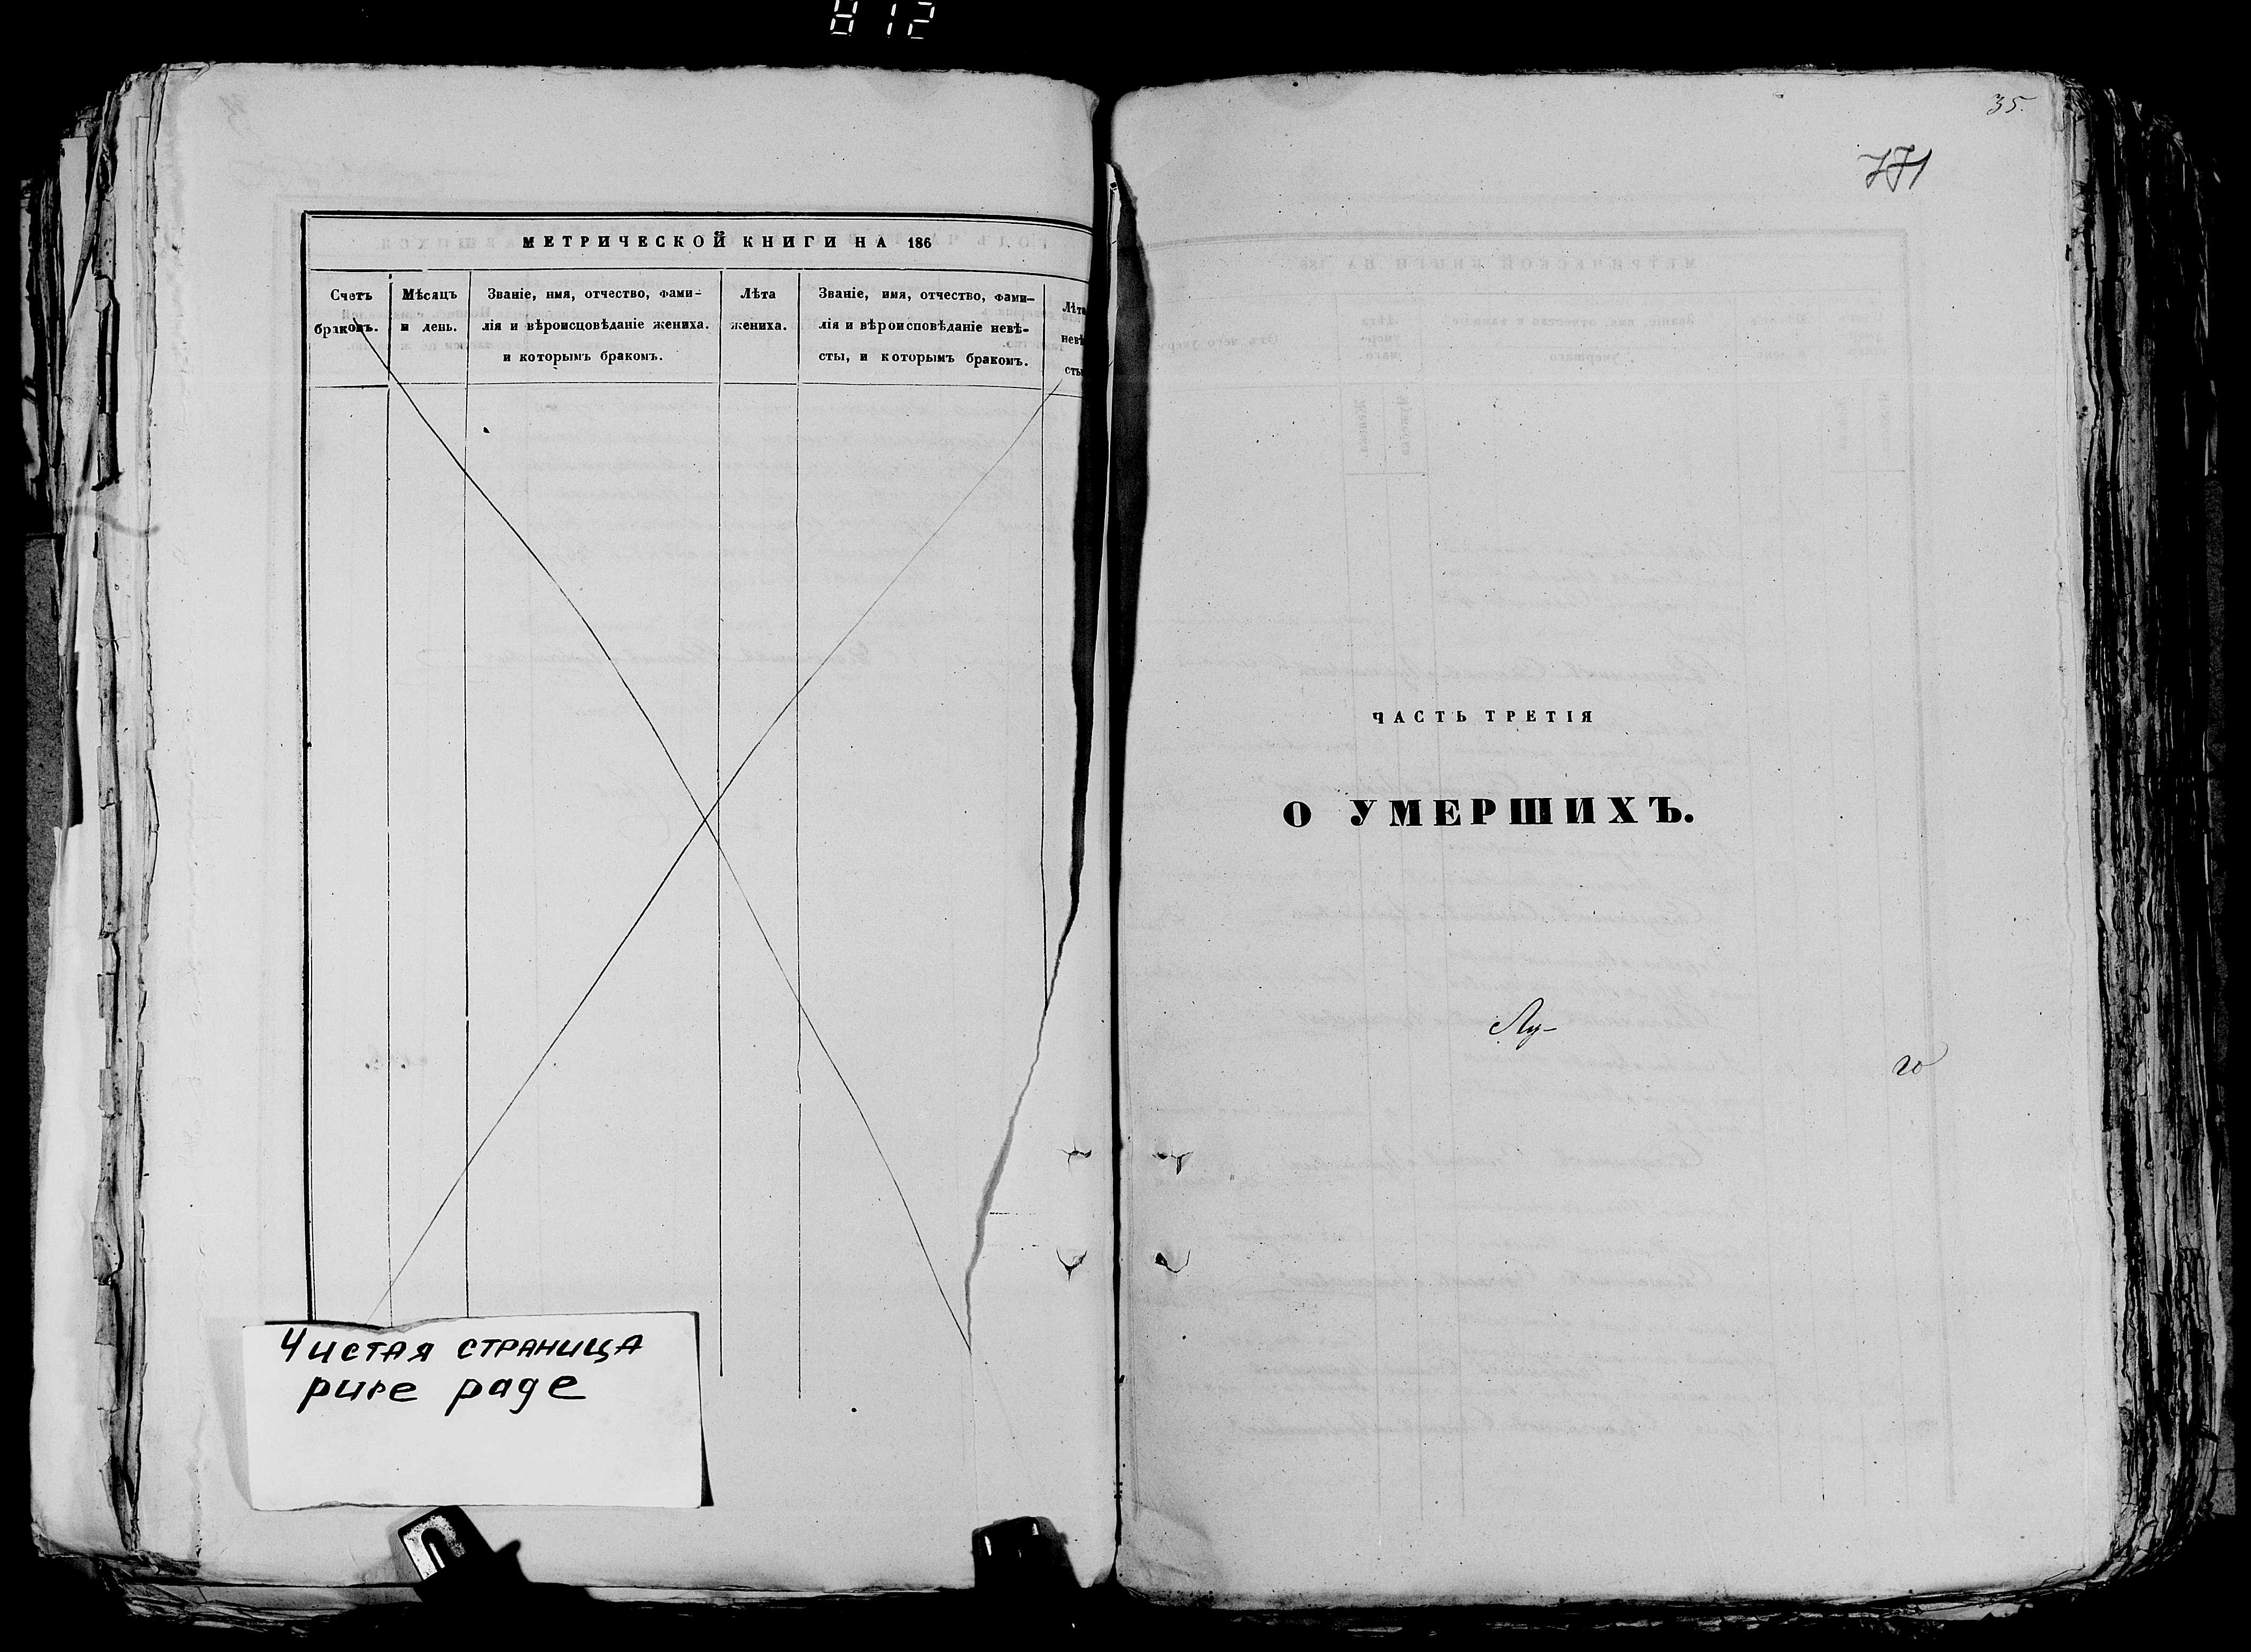 812
МЕТРИЧЕСКОЙ КНИГИ НА 186
Счетъ
браковъ.
Мѣсяцъ
и день.
Званіе, имя, отчество, фами-
лія и вѣроисповѣданіе жениха.
и которымъ бракомъ.
Лѣта
жениха.
Званіе, имя, отчество, фами-
лія и вѣроисповѣданіе невѣ-
сты, и которымъ бракомъ.
Лѣта
невѣ
сты
Чистая страница
pure page
35.
771
ЧАСТЬ ТРЕТІЯ
О УМЕРШИХЪ.
Лу-
го